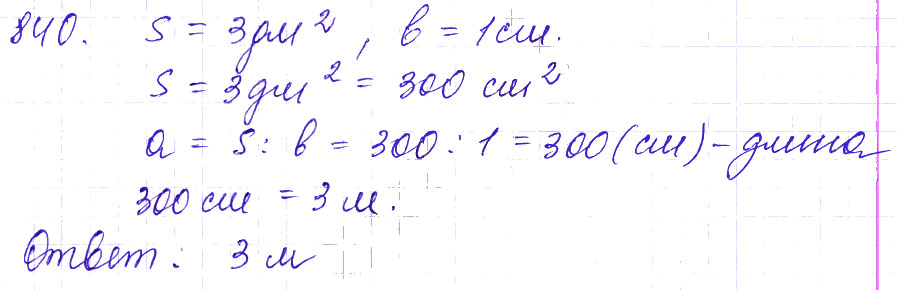 840. S = 3дм², b = 1см.
S = 3дм² = 300 см²
a = S : b = 300 : 1 = 300 (см) – длина
300 см = 3 м.
Ответ: 3 м